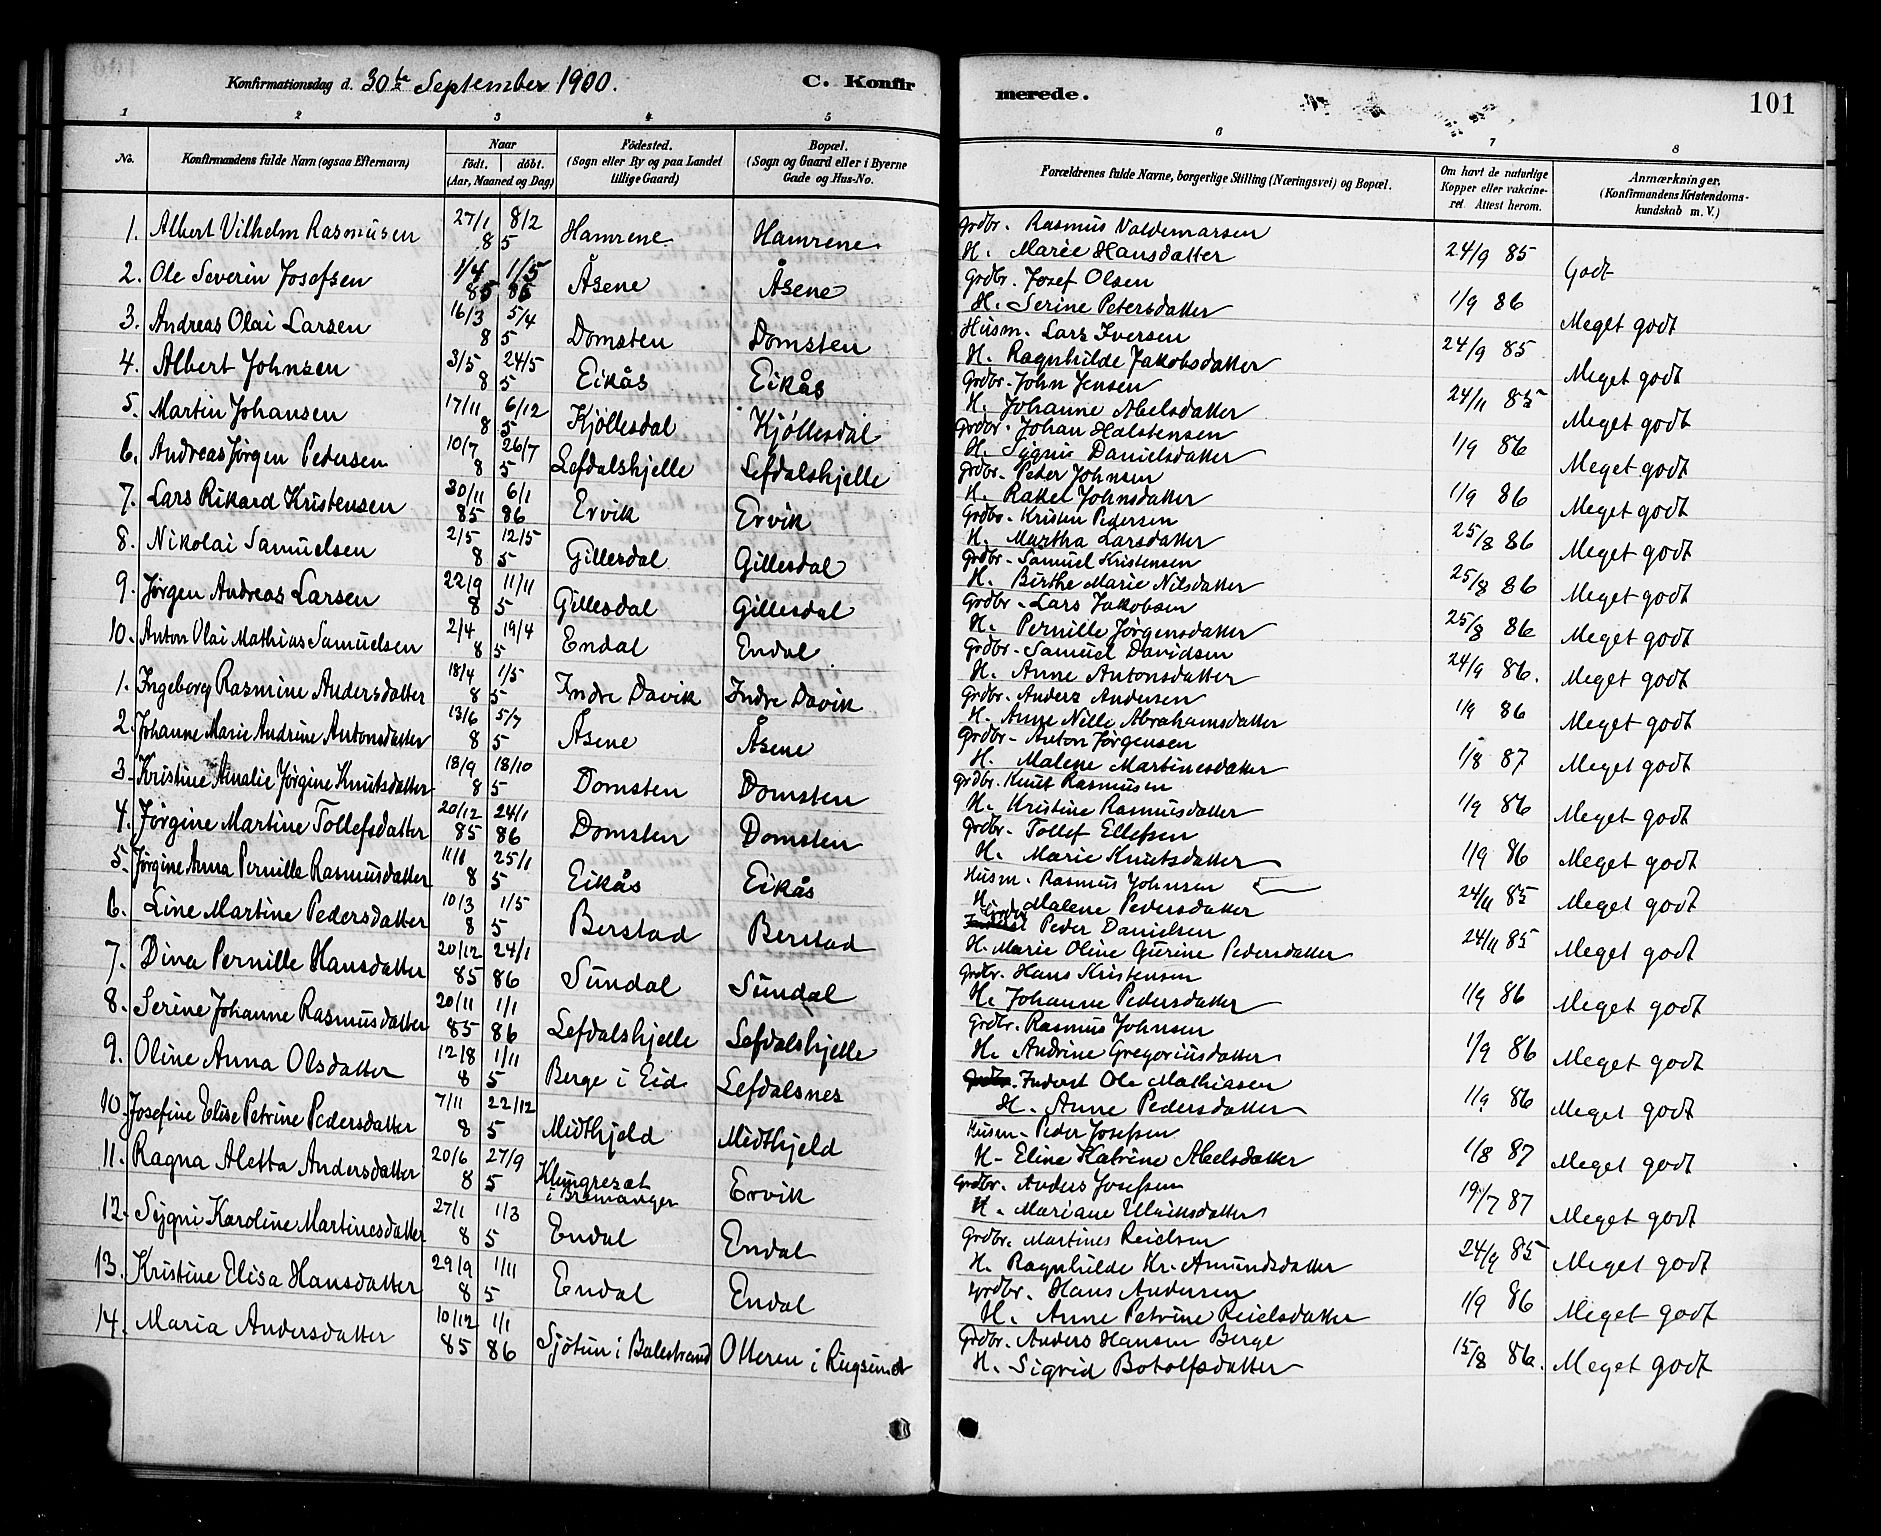 Konfirmationsdag d. 30te September 1900. C. Konfirmerede. 101
1 2 3 4 5 6 7 8
No. Konfirmandens fulde Navn (ogsaa Efternavn) Naar födt. döbt. (Aar, Maaned og Dag) Födested. (Sogn eller By og paa Landet tillige Gaard) Bopæl. (Sogn og Gaard eller i Byerne Gade og Hus-No. Forældrenes fulde Navne, borgerlige Stilling (Næringsvei) og Bopæl. Om havt de naturlige Kopper eller vakcineret. Attest herom. Anmærkninger. (Konfirmandens Kristendomskundskab m. V.)
1. Albert Vilhelm Rasmusen 27/1 8/2 85 Hamrene Hamrene Grdbr. Rasmus Valdemarsen
H. Marie Hansdatter 24/9 85 Godt
2. Ole Severin Josefsen 1/4 85 1/5 85 Åsene Åsene Grdbr. Josef Olsen
H. Serine Petersdatter 1/9 86 Meget godt
3. Andreas Olai Larsen 16/3 5/4 85 Domsten Domsten Husm. Lars Iversen
H. Ragnhilde Jakobsdatter 24/9 85 Meget godt
4. Albert Johnsen 3/5 24/5 85 Eikås Eikås Grdbr. John Jensen
H. Johanne Abelsdatter 24/11 85 Meget godt
5. Martin Johansen 17/11 6/12 85 Kjöllesdal Kjöllesdal Grdbr. Johan Halstensen
H. Sygni Danielsdatter 1/9 86 Meget godt
6. Andreas Jørgen Pedersen 10/7 26/7 85 Lefdalshjelle Lefdalshjelle Grdbr. Peder Johnsen
H. Rakel Johnsdatter 1/9 86 Meget godt
7. Lars Rikard Kristensen 30/11 85 6/1 86 Ervik Ervik Grdbr. Kristen Pedersen
H. Martha Larsdatter 25/8 86 Meget godt
8. Nikolai Samuelsen 2/5 12/5 85 Gillesdal Gillesdal Grdbr. Samuel Kristensen
H. Birthe Marie Nilsdatter 25/8 86 Meget godt
9. Jørgen Andreas Larsen 22/9 11/11 85 Gillesdal Gillesdal Grdbr. Lars Jakobsen
H. Pernille Jørgensdatter 25/8 86 Meget godt
10. Anton Olai Mathias Samuelsen 2/4 19/4 85 Endal Endal Grdbr. Samuel Davidsen
H. Anne Antonsdatter 24/9 86. Meget godt
1. Ingeborg Rasmine Andersdatter 18/4 1/5 85 Indre Davik Indre Davik Grdbr. Anders Andersen
H. Anne Nille Abrahamsdatter 1/9 86 Meget godt
2. Johanne Marie Andrine Antonsdatter 13/6 5/7 85 Åsene Åsene Grdbr. Anton Jørgensen
H. Malene Martinesdatter 1/8 87 Meget godt
3. Kristine Amalie Jørgine Knutsdatter 18/9 18/10 85 Domsten Domsten Grdbr. Knut Rasmusen
H. Kristine Rasmusdatter 1/9 86 Meget godt
4. Jørgine Martine Tollefsdatter 20/12 85 24/1 86 Domsten Domsten Grdbr. Tollef Ellefsen
H. Marie Knutsdatter 1/9 86 Meget godt
5. Jørgine Anna Pernille Rasmusdatter 11/1 25/1 85 Eikås Eikås Husm. Rasmus Johnsen
H. Malene Pedersdatter 24/11 85 Meget godt
6. Line Martine Pedersdatter 10/3 1/5 85 Berstad Berstad Peder Danielsen
H. Marie Oline Gurine Pedersdatter 24/11 85 Meget godt
7. Dina Pernille Hansdatter 20/12 85 24/1 86 Sundal Sundal Grdbr. Hans Kristensen
H. Johanne Pedersdatter 1/9 86 Meget godt
8. Serine Johanne Rasmusdatter 20/11 85 1/1 86 Lefdalshjelle Lefdalshjelle Grdbr. Rasmus Johnsen
H. Andrine Gregoriusdatter 1/9 86 Meget godt
9. Oline Anna Olsdatter 12/8 1/11 85 Berge i Eid Lefdalsnes Inderst Ole Mathiasen
H. Anne Pedersdatter 1/9 86 Meget godt
10. Josefine Elise Petrine Pedersdatter 7/11 22/12 85 Midthjeld Midthjeld Husm. Peder Josefsen
H. Eline Katrine Abelsdatter 1/8 87 Meget godt
11. Ragna Aletta Andersdatter 20/6 27/9 85 Klungreset i Bremanger Ervik Grdbr. Anders Josefsen
H. Mariane Ulriksdatter 19/7 87 Meget godt
12. Sygni Karoline Martinesdatter 27/1 1/3 85 Endal Endal Grdbr. Martines Reielsen
H. Ragnhilde Kr. Amundsdatter 24/9 85 Meget godt
13. Kristine Elisa Hansdatter 29/9 1/11 85 Endal Endal Grdbr. Hans Andersen
H. Anne Petrine Reielsdatter 1/9 86 Meget godt
14. Maria Andersdatter 10/12 85 1/1 86 Sjötun i Balestrand Otteren i Rugsund Grdbr. Anders Hansen Berge
H. Sigrid Botolfsdatter 15/8 86. Meget godt